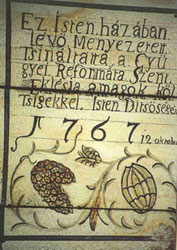 Ez Isten házában
lévő Menyezeten
Tsinálrata a Gyü
gyei Reformára Szent
Eklésia a magok köl
tségekkel. Isten Ditsőségére
1767
12 oktobr